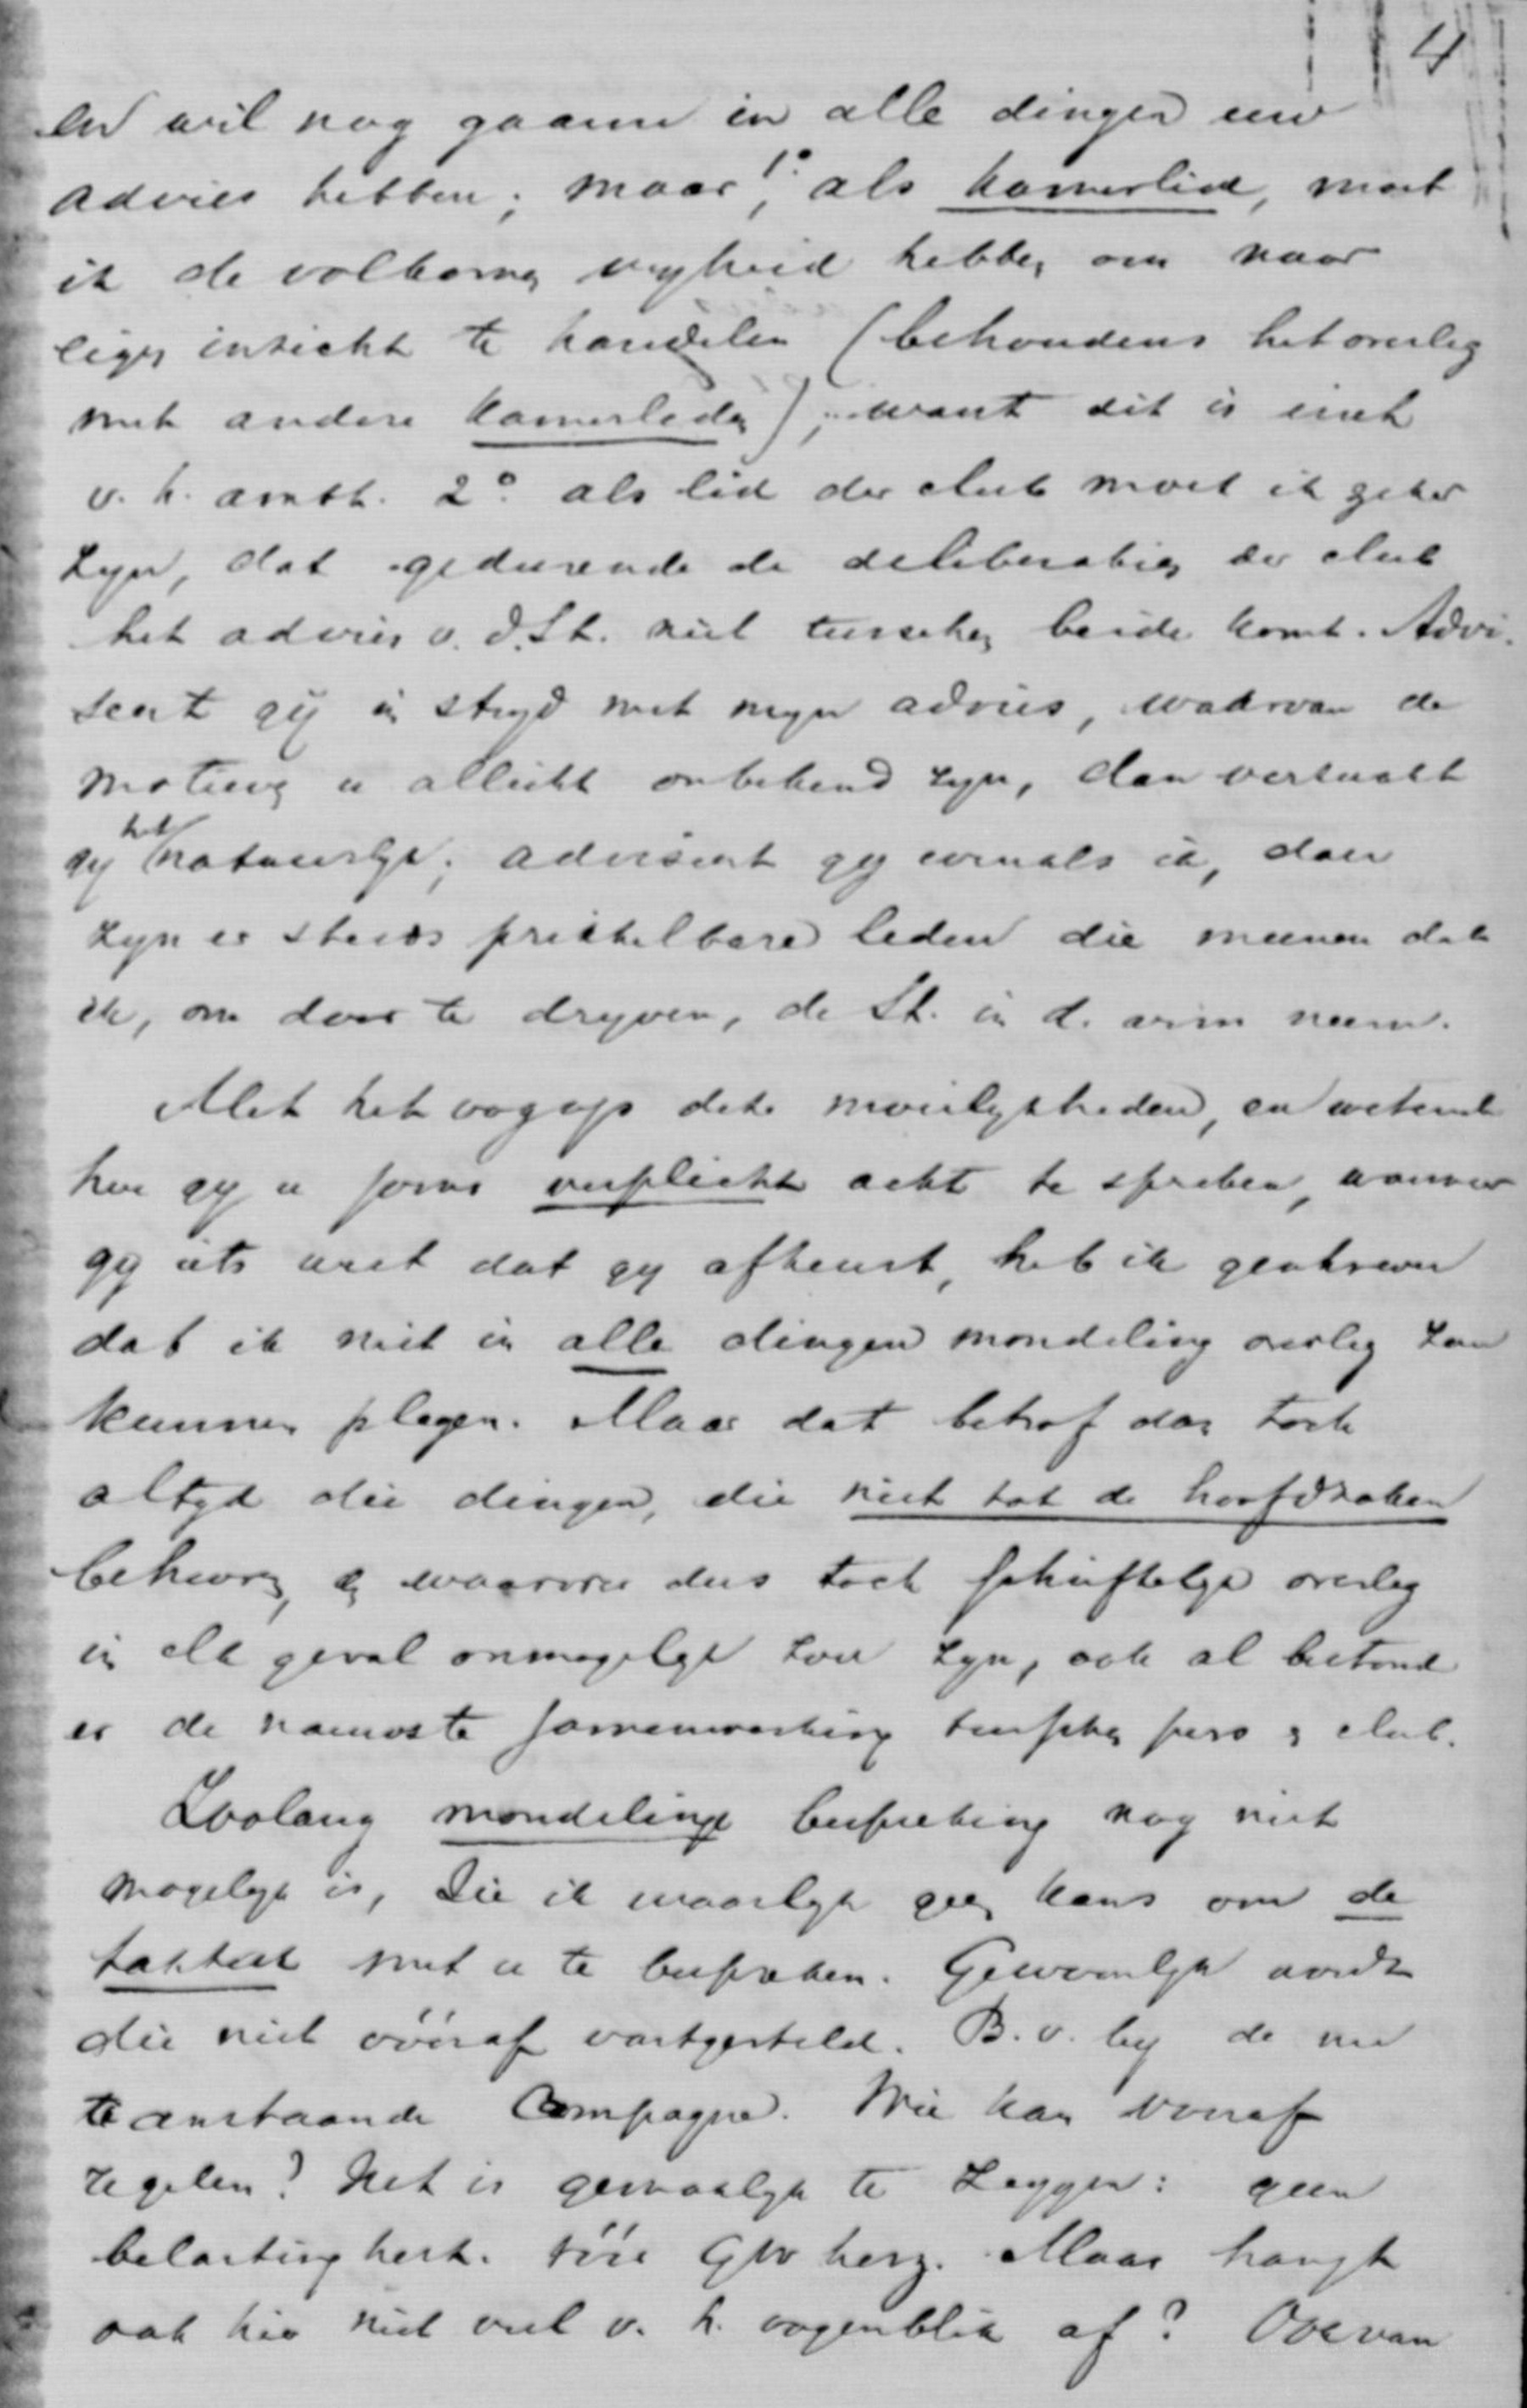 4
en wil nog gaarne in alle dingen uw
advies hebben; maar, 1° als Kamerlid, moet
ik de volkomen vryheid hebben om naar
eigen inzicht te handelen (behoudens het overleg
met andere Kamerleden); want dit is eisch
v. h. ambt. 2° als lid der club moet ik zeker
zyn, dat gedurende de deliberatien der club
het advies v. d. St. niet tusschen beide komt. Advi-
seert gij in stryd met myn advies, waarvan de
motieven u allicht onbekend zyn, dan verzwakt
gy het natuurlyk; adviseert gy evenals ik, dan
zyn er steeds prikkelbare leden die meenen dat
ik, om door te dryven, de St. in d. arm neem.
Met het oog op deze moeilykheden, en wetend
hoe gy u soms verplicht acht te spreken, wanneer
gy iets weet dat gy afkeurt, heb ik geschreven
dat ik niet in alle dingen mondeling overleg zou
kunnen plegen. Maar dat betrof dan toch
altyd die dingen, die niet tot de hoofdzaken
behooren, en waarover dus toch schriftelyk overleg
in elk geval onmogelyk zou zyn, ook al bestond
er de nauwste samenwerking tusschen pers en club.
Zoolang mondelinge bespreking nog niet
mogelyk is, zie ik waarlyk geen kans om de
taktiek met u te bespreken. Gewoonlyk wordt
die niet vóóraf vastgesteld. B.v. by de nu
te aanstaande Campagne. Wie kan vooraf
regelen? Het is gemaklyk te zeggen: geen
belasting herz. vóór GW herz. Maar hangt
ook hier niet veel v. h. oogenblik af? Over van